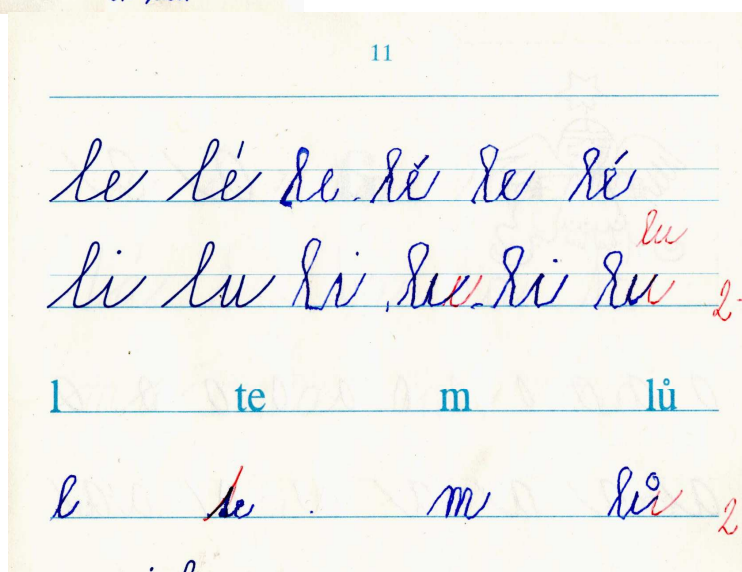 11
le lé le lé le lé
lu
li lu li lu li lu 2-
l te m lů
l te m lů 2